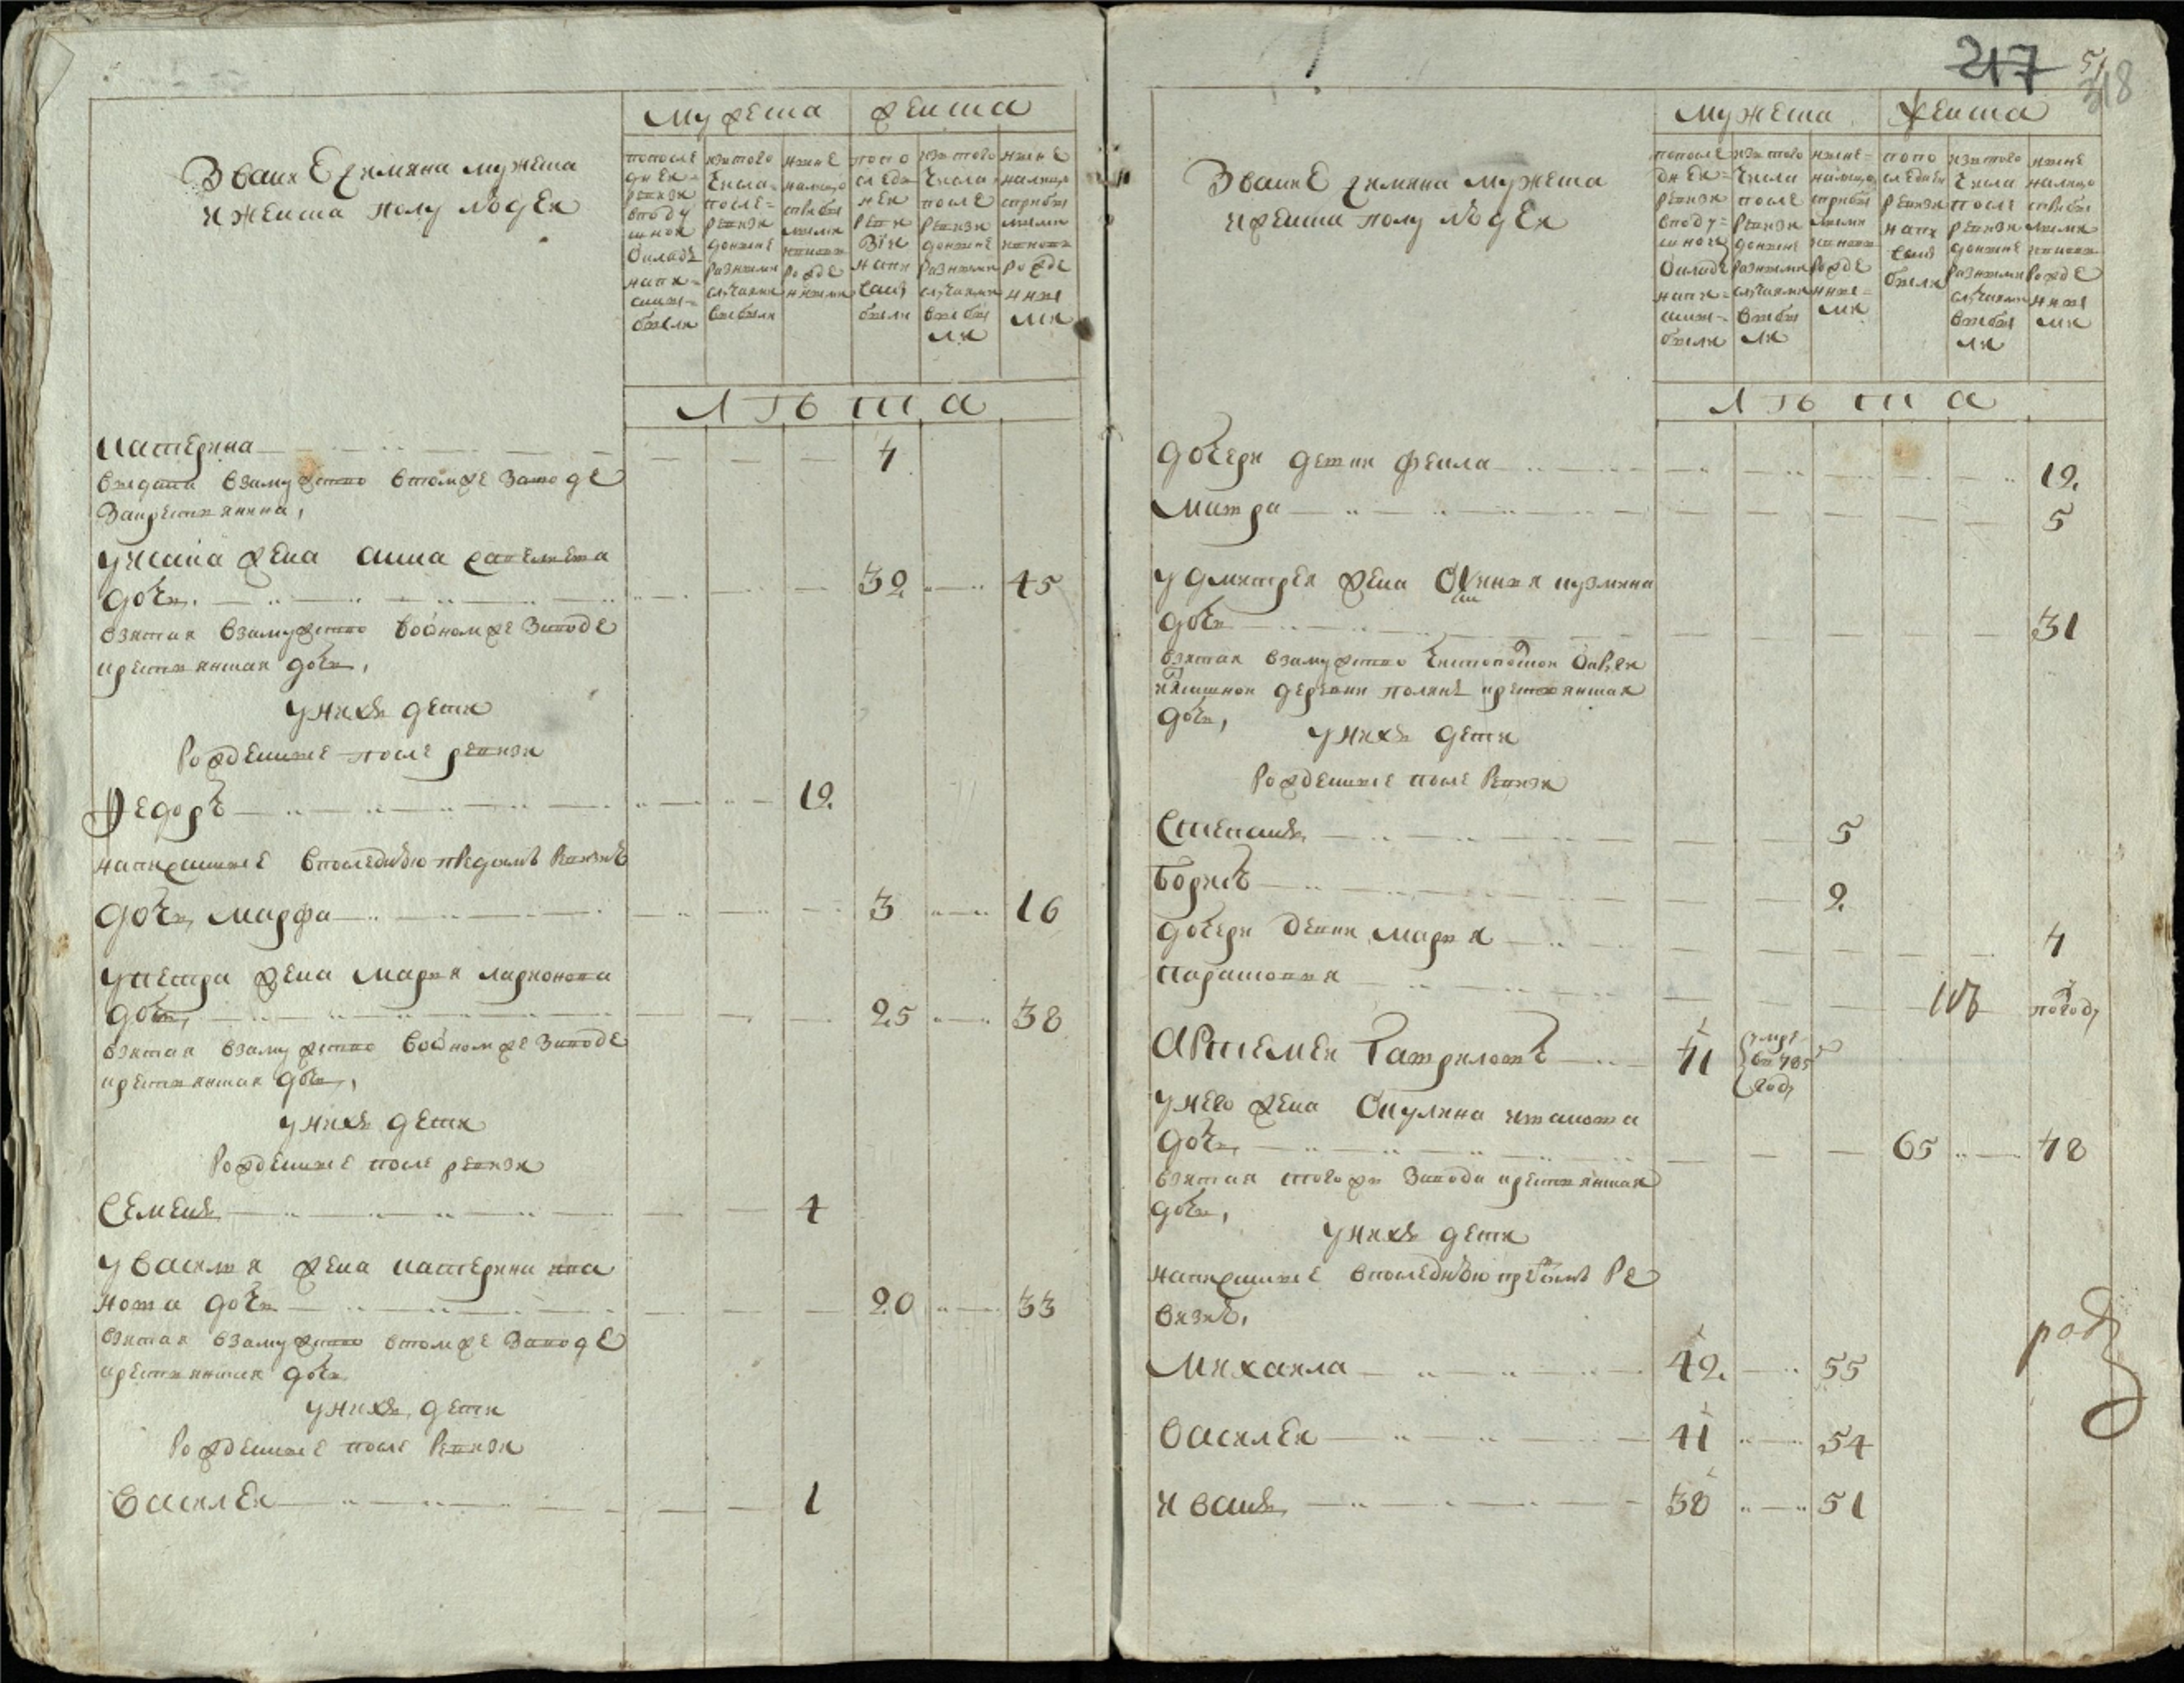 Звание и имяна мужеска
и женска полу людей
мужеска
женска
по после
дней
ревизи
в поду
шной
окладъ
напи-
саны
были
из того
числа
после
ревизи
до ныне
разными
случаями
выбыли
ныне
налицо
с прибы
лыми
и вновь
рожде
нными
по по
следн
ней
реви
зiи
напи
саны
были
из того
числа
после
ревизи
до ныне
разными
случаями
выбы
ли
ныне
налицо
с прибы
лыми
и вновь
рожде
нны
ми
лѣта
Катерина 4
выдана взамужство втомже заводе
за крестьянина,
у Исака жена Анна Савельева
дочь 32 45
взятая взамужство водномже заводе
крестьянская дочь,
у нихъ дети
рожденные после ревизи
Федоръ 12
написанные впоследнюю предсимъ ревизию
дочь Марфа 3 16
у Петра жена Марья Ларионова
дочь 25 38
взятая взамужство водномже заводе
крестьянская дочь,
у нихъ дети
рожденные после ревизи
Семенъ 4
у Василья жена Катерина Ива
нова дочь 20 33
взятая взамужство втомже заводе
крестьянская дочь
у нихъ дети
рожденные после ревизи
Василей 1
217
51
318
Звание и имяна мужеска
и женска полу людей
мужеска
женска
по после
дней
ревизи
в поду
шной
окладе
напи-
саны
были
из того
числа
после
ревизи
до ныне
разными
случаями
выбы
ли
ныне
налицо
с прибы
лыми
и вновь
рожде
нны
ми
по по
следней
ревизи
напи
саны
были
из того
числа
после
ревизи
до ныне
разными
случаями
выбы
ли
ныне
налицо
с прибы
лыми
и вновь
рожде
нны
ми
лѣта
дочери девки Фекла 12
Матра 5
у Дмитрея жена Кузмина
дочь 31
взятая взамужство
деревни крестьянская
дочь,
у нихъ дети
рожденные после ревизи
Степанъ 5
Борисъ 2
дочери девки Марья 4
Парасковья погоду
Артемей Гавриловъ 71 умре
в 785
году
у него жена Окулина
дочь 65 78
взятая того же завода крестьянская
дочь,
у нихъ дети
написанные впоследнюю пред симъ ре
визию,
Михаила 42 55
Василей 41 54
Иванъ 38 51